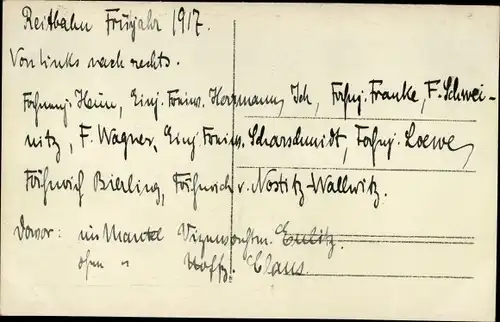 Reitbahn Frühjahr 1917.
Von links nach rechts.
Fahnenj. Heun, Einj. Freiw. Herrmann, Ich, Fahnj. Franke, F. Schwei-
nitz, F. Wagner, Einj. Freiw. Scharschmidt, Fahnj. Loewe,
Fähnrich Bierling, Fähnrich v. Nostitz-Wallwitz.
Davor: mit Mantel Vizewachtm. Eulitz.
ohne " Uoffz. Claus.